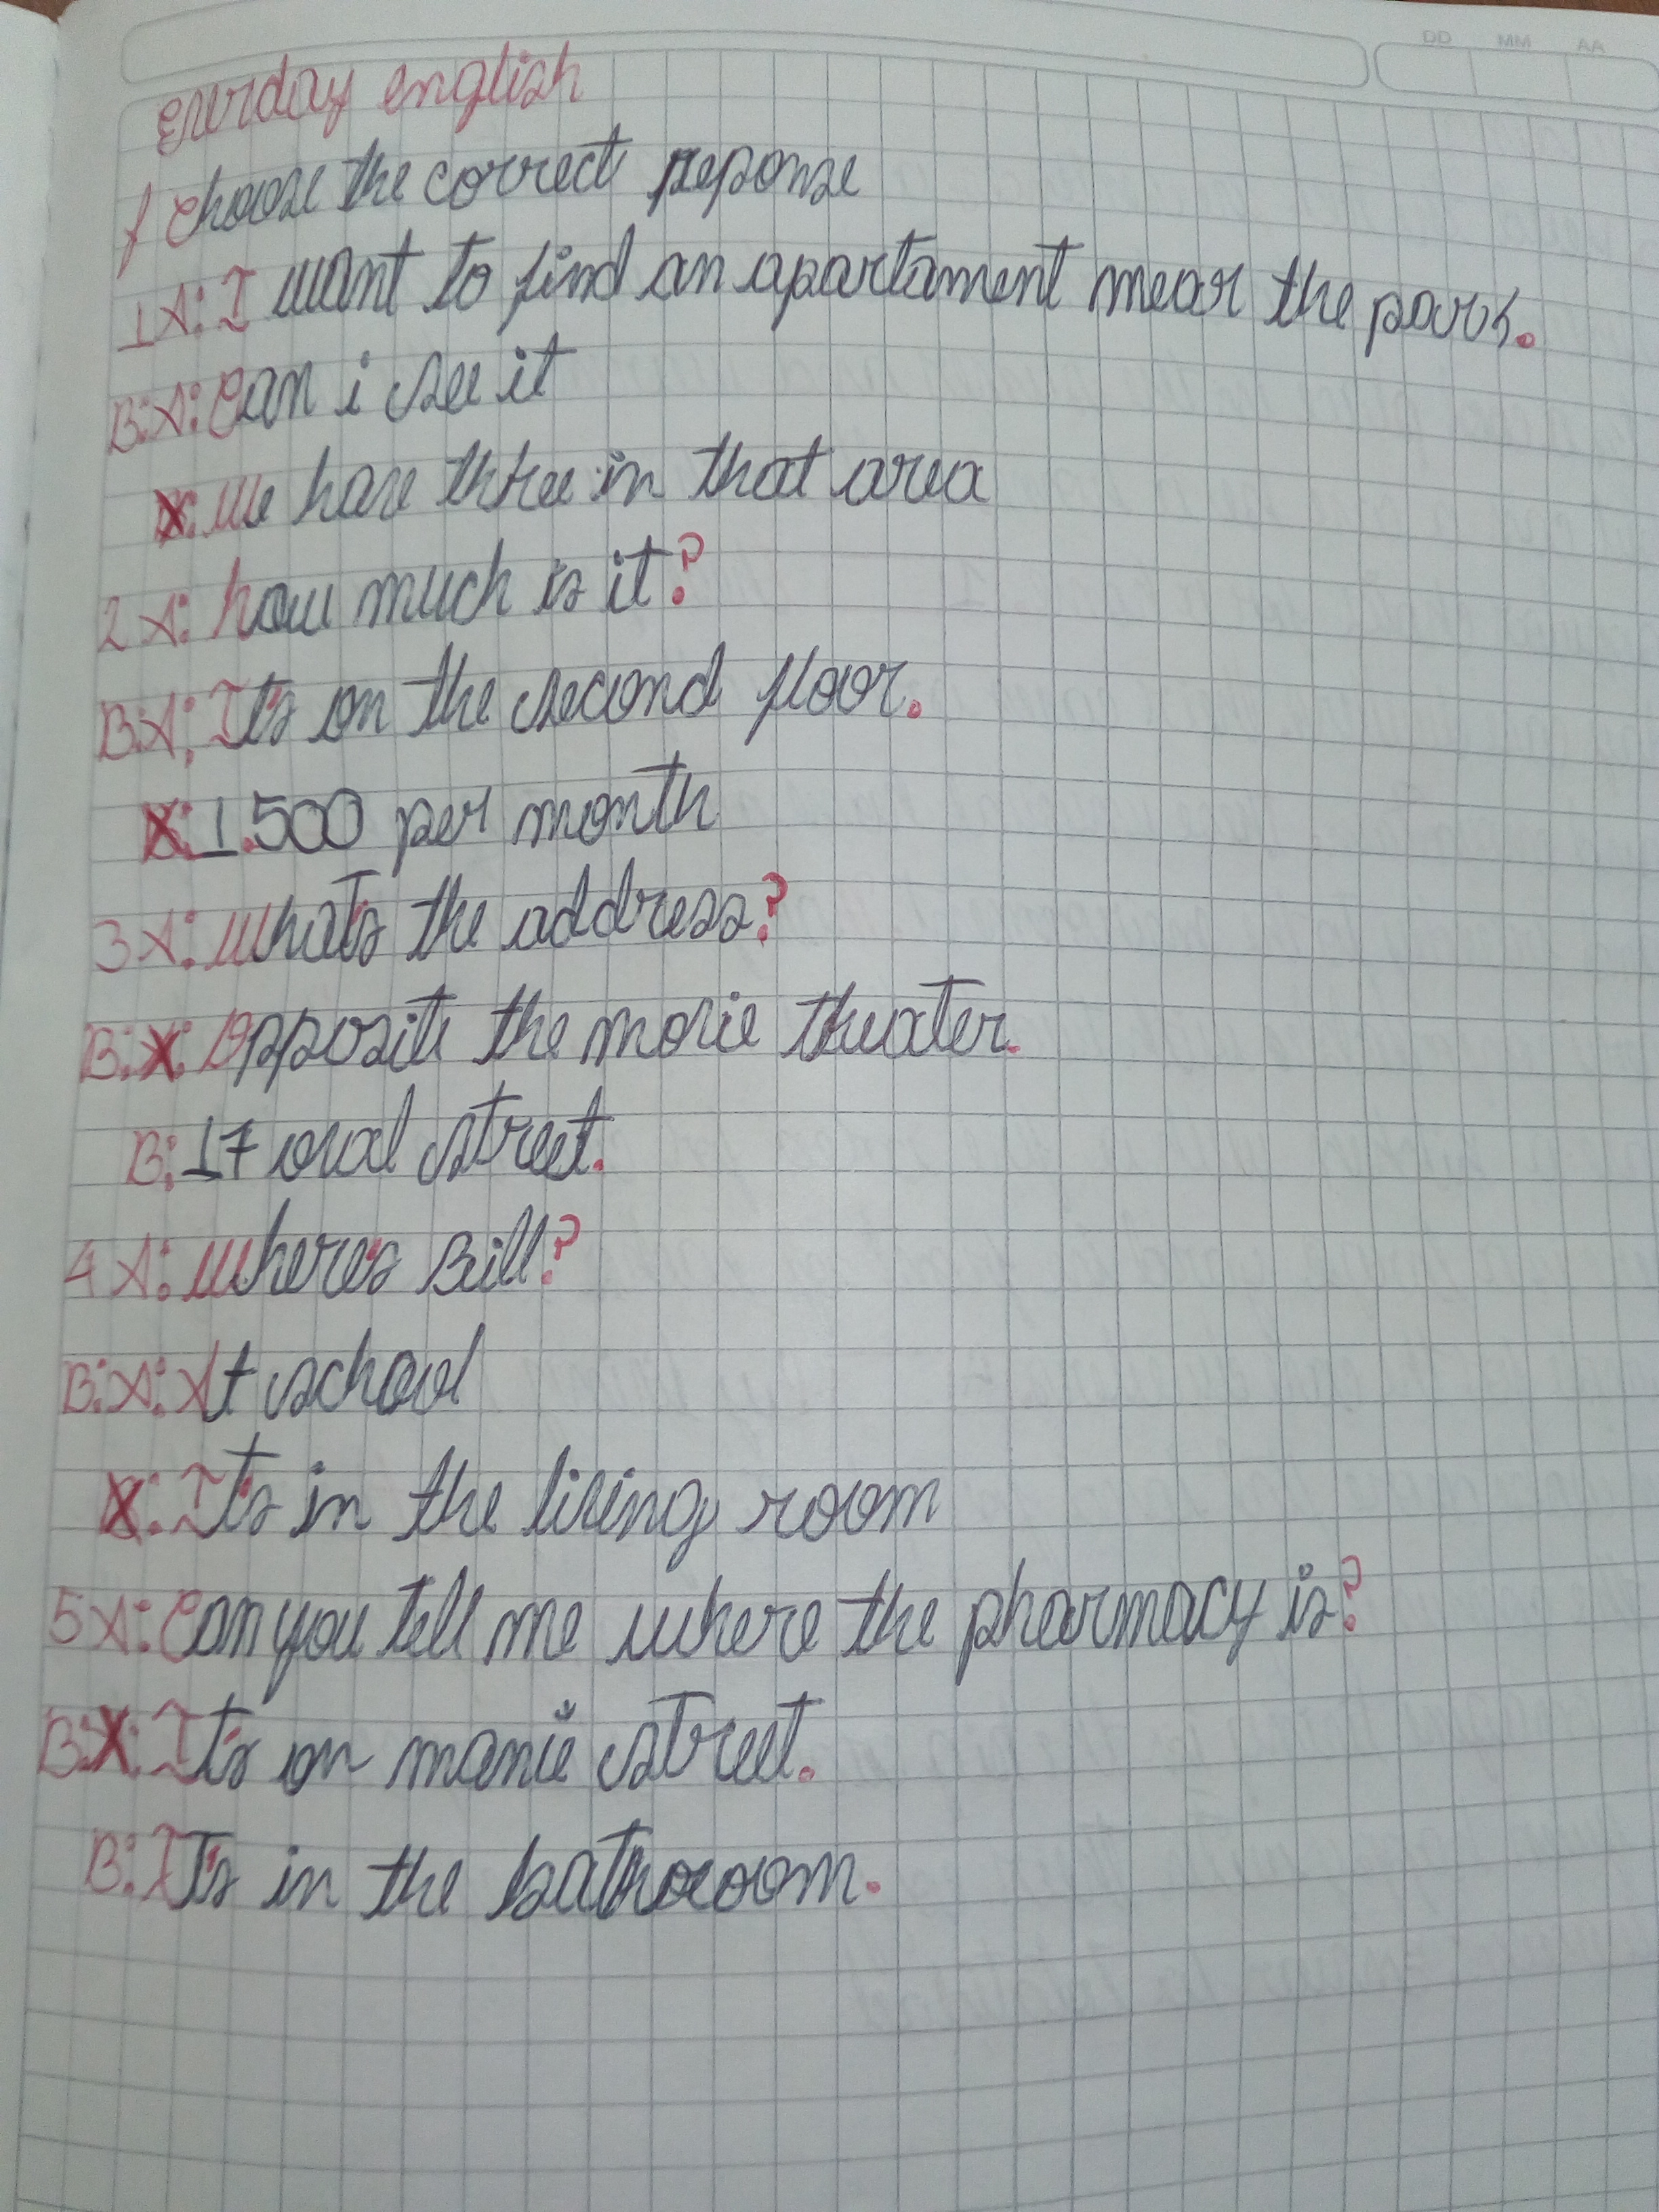 DD MM AA
Everday english
1 choose the correct reponse
1A: I want to find an apartament near the park.
B:A: Can i see it
B: We have three in that area
2A: how much is it?
B:A: It's on the second floor.
B: 1.500 per month
3A: What's the address?
B:A: Opposite the movie theater.
B: 17 oval street.
4A: Where's Bill?
B:A: At school
B: It's in the living room
5A: Can you tell me where the pharmacy is?
B:A: It's on street.
B: It's in the bathroom.